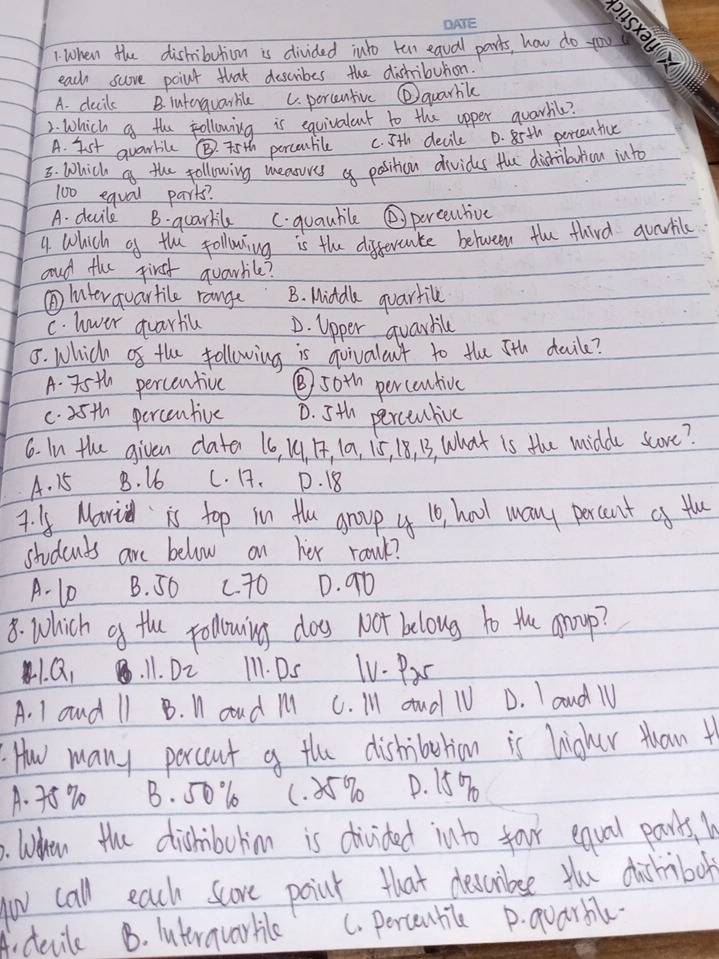 DATE
flexstick
1. When the distribution is divided into ten equal parts, how do you
each score point that describes the distribution.
A. decile B. Interquartile C. percentive D. quartile
2. Which of the following is equivalent to the upper quartile?
A. 1st quartile B. 75th percentile C. 5th decile D. 85th percentive
3. Which of the following measures of position divides the distribution into
100 equal parts?
A. decile B. quartile C. quantile D. percentive
4. Which of the following is the difference between the third quartile
and the first quartile?
A Interquartile range B. Middle quartile
C. lower quartile D. Upper quartile
5. Which of the following is quivalent to the 5th decile?
A. 75th percentive B 50th percentive
C. 25th percentive D. 5th percentive
6. In the given data 16, 14, 17, 19, 15, 18, 13, What is the middle score?
A. 15 B. 16 C. 17. D. 18
7. If Maria is top in the group of 10, how many percent of the
students are below on her rank?
A. 10 B. 50 C. 70 D. 90
8. Which of the following does NOT belong to the group?
I. Q1 II. D2 III. D5 IV. P25
A. I and II B. II and III C. III and IV D. I and IV
. How many percent of the distribution is higher than
A. 75% B. 50% C. 25% D. 15%
. When the distribution is divided into four equal parts,
you call each score point that describes the
A. decile B. Interquartile C. percentile D. quartile.